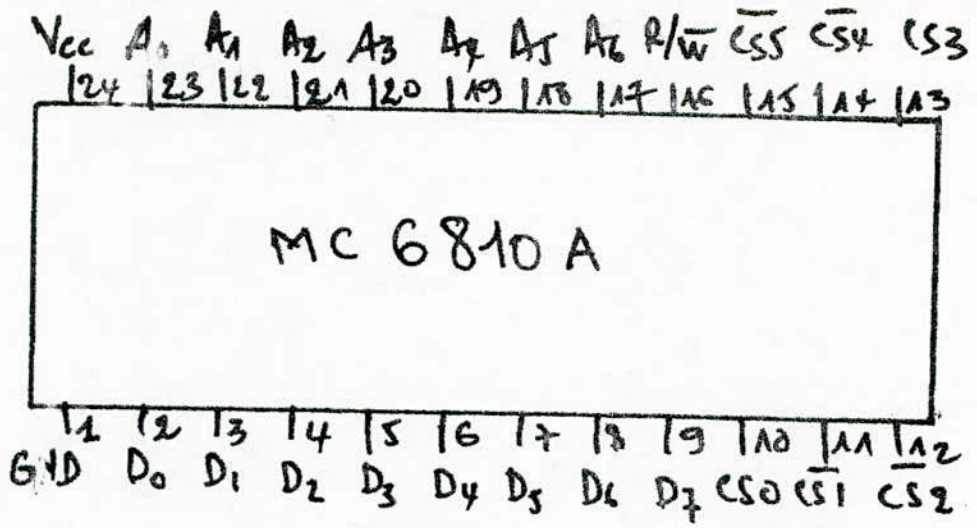 Vcc A₀ A₁ A₂ A₃ A₄ A₅ A₆ R/W̅ C̅S̅5̅ C̅S̅4̅ CS3
24 23 22 21 20 19 18 17 16 15 14 13
MC 6810 A
1 2 3 4 5 6 7 8 9 10 11 12
GND D₀ D₁ D₂ D₃ D₄ D₅ D₆ D₇ CS0 C̅S̅1̅ C̅S̅2̅